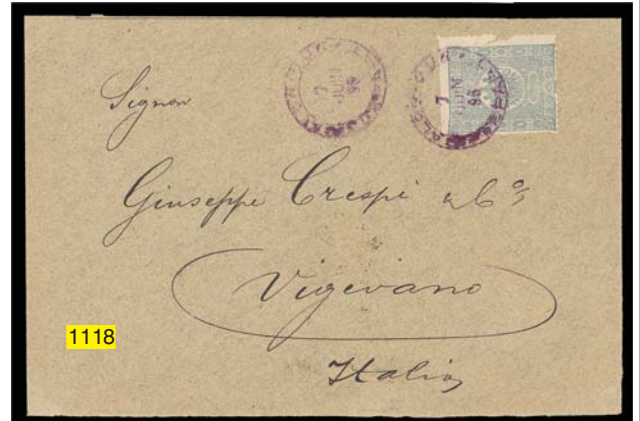 7
JUIN
98
7
JUIN
98
Signor
Giuseppe Crespi & Cº
Vigevano
Italia
1118